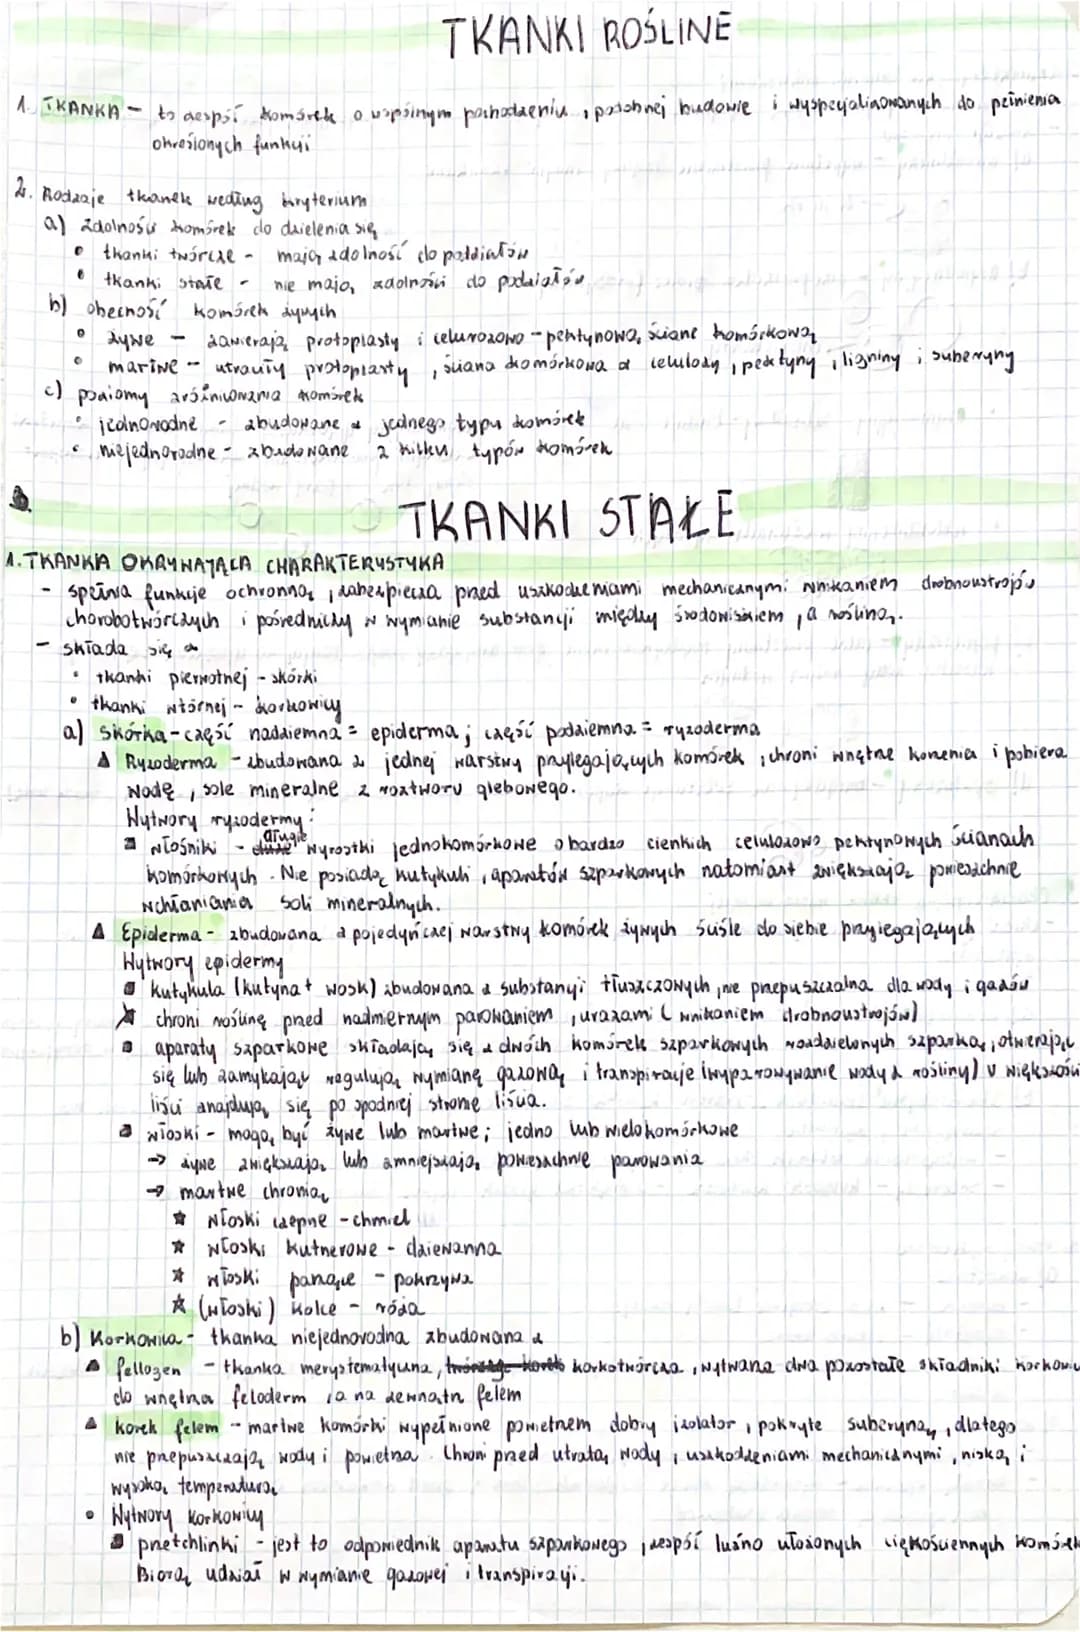 TKANKI ROŚLINE
1. TKANKA - to zespół komórek o wspólnym pochodzeniu, podobnej budowie i wyspecjalizowanych do pełnienia
określonych funkcji
2. Rodzaje tkanek według kryterium
a) zdolności komórek do dzielenia się
• tkanki twórcze - mają zdolność do podziałów
• tkanki stałe - nie mają zdolności do podziałów
b) obecność komórek żywych
• żywe - zawierają protoplasty i celulozowo-pektynową ścianę komórkową
• martwe - utraciły protoplasty, ściana komórkowa z celulozy, pektyny, ligniny i suberyny
c) poziomy zróżnicowania komórek
• jednorodne - zbudowane z jednego typu komórek
• niejednorodne - zbudowane z kilku typów komórek
TKANKI STAŁE
1. TKANKA OKRYWAJĄCA CHARAKTERYSTYKA
- spełnia funkcje ochronną, zabezpiecza przed uszkodzeniami mechanicznymi wnikaniem drobnoustrojów
chorobotwórczych i pośredniczy w wymianie substancji między środowiskiem, a rośliną.
- składa się z
• tkanki pierwotnej - skórki
• tkanki wtórnej - korkowicy
a) skórka - część nadziemna = epiderma; część podziemna = ryzoderma
▲ Ryzoderma - zbudowana z jednej warstwy przylegających komórek, chroni wnętrze korzenia i pobiera
wodę, sole mineralne z roztworu glebowego.
Wytwory ryzodermy:
▪ włośniki - długie wyrostki jednokomórkowe o bardzo cienkich celulozowo pektynowych ścianach
komórkowych. Nie posiadą kutykuli, aparatów szparkowych natomiast zwiększają powierzchnie
wchłaniania soli mineralnych.
▲ Epiderma - zbudowana z pojedyńczej warstwy komórek żywych ściśle do siebie przylegających
Wytwory epidermy
▪ kutykula (kutyna + wosk) zbudowana z substancji tłuszczowych, nie przepuszczalna dla wody i gazów
chroni roślinę przed nadmiernym parowaniem, urazami (wnikaniem drobnoustrojów)
▪ aparaty szparkowe składają się z dwóch komórek szparkowych rozdzielonych szparką, otwierając
się lub zamykając regulują wymianę gazową i transpiracje (wyparowywanie wody z rośliny) U większości
liści znajdują się po spodniej stronie liścia.
▪ włoski - mogą być żywe lub martwe; jedno lub wielokomórkowe
→ żywe zwiększają lub zmniejszają powierzchnie parowania
→ martwe chronią
☆ włoski czepne - chmiel
☆ włoski kutnerowe - dziewanna
☆ włoski parzące - pokrzywa
☆ (włoski) kolce - róża
b) Korkowica - tkanka niejednorodna zbudowana z
▲ fellogen - tkanka merystematyczna, korkotwórcza, wytwarza dwa pozostałe składniki korkowic
do wnętrza feloderm, a na zewnątrz felem
▲ korek felem - martwe komórki wypełnione powietrzem dobry izolator, pokryte suberyną, dlatego
nie przepuszczają wody i powietrza. Chroni przed utratą wody, uszkodzeniami mechanicznymi, niską i
wysoką temperaturą
• Wytwory korkowicy
▪ przetchlinki - jest to odpowiednik aparatu szparkowego, zespół luźno ułożonych cięnkościennych komórek
Biorą udział w wymianie gazowej i transpiracji.